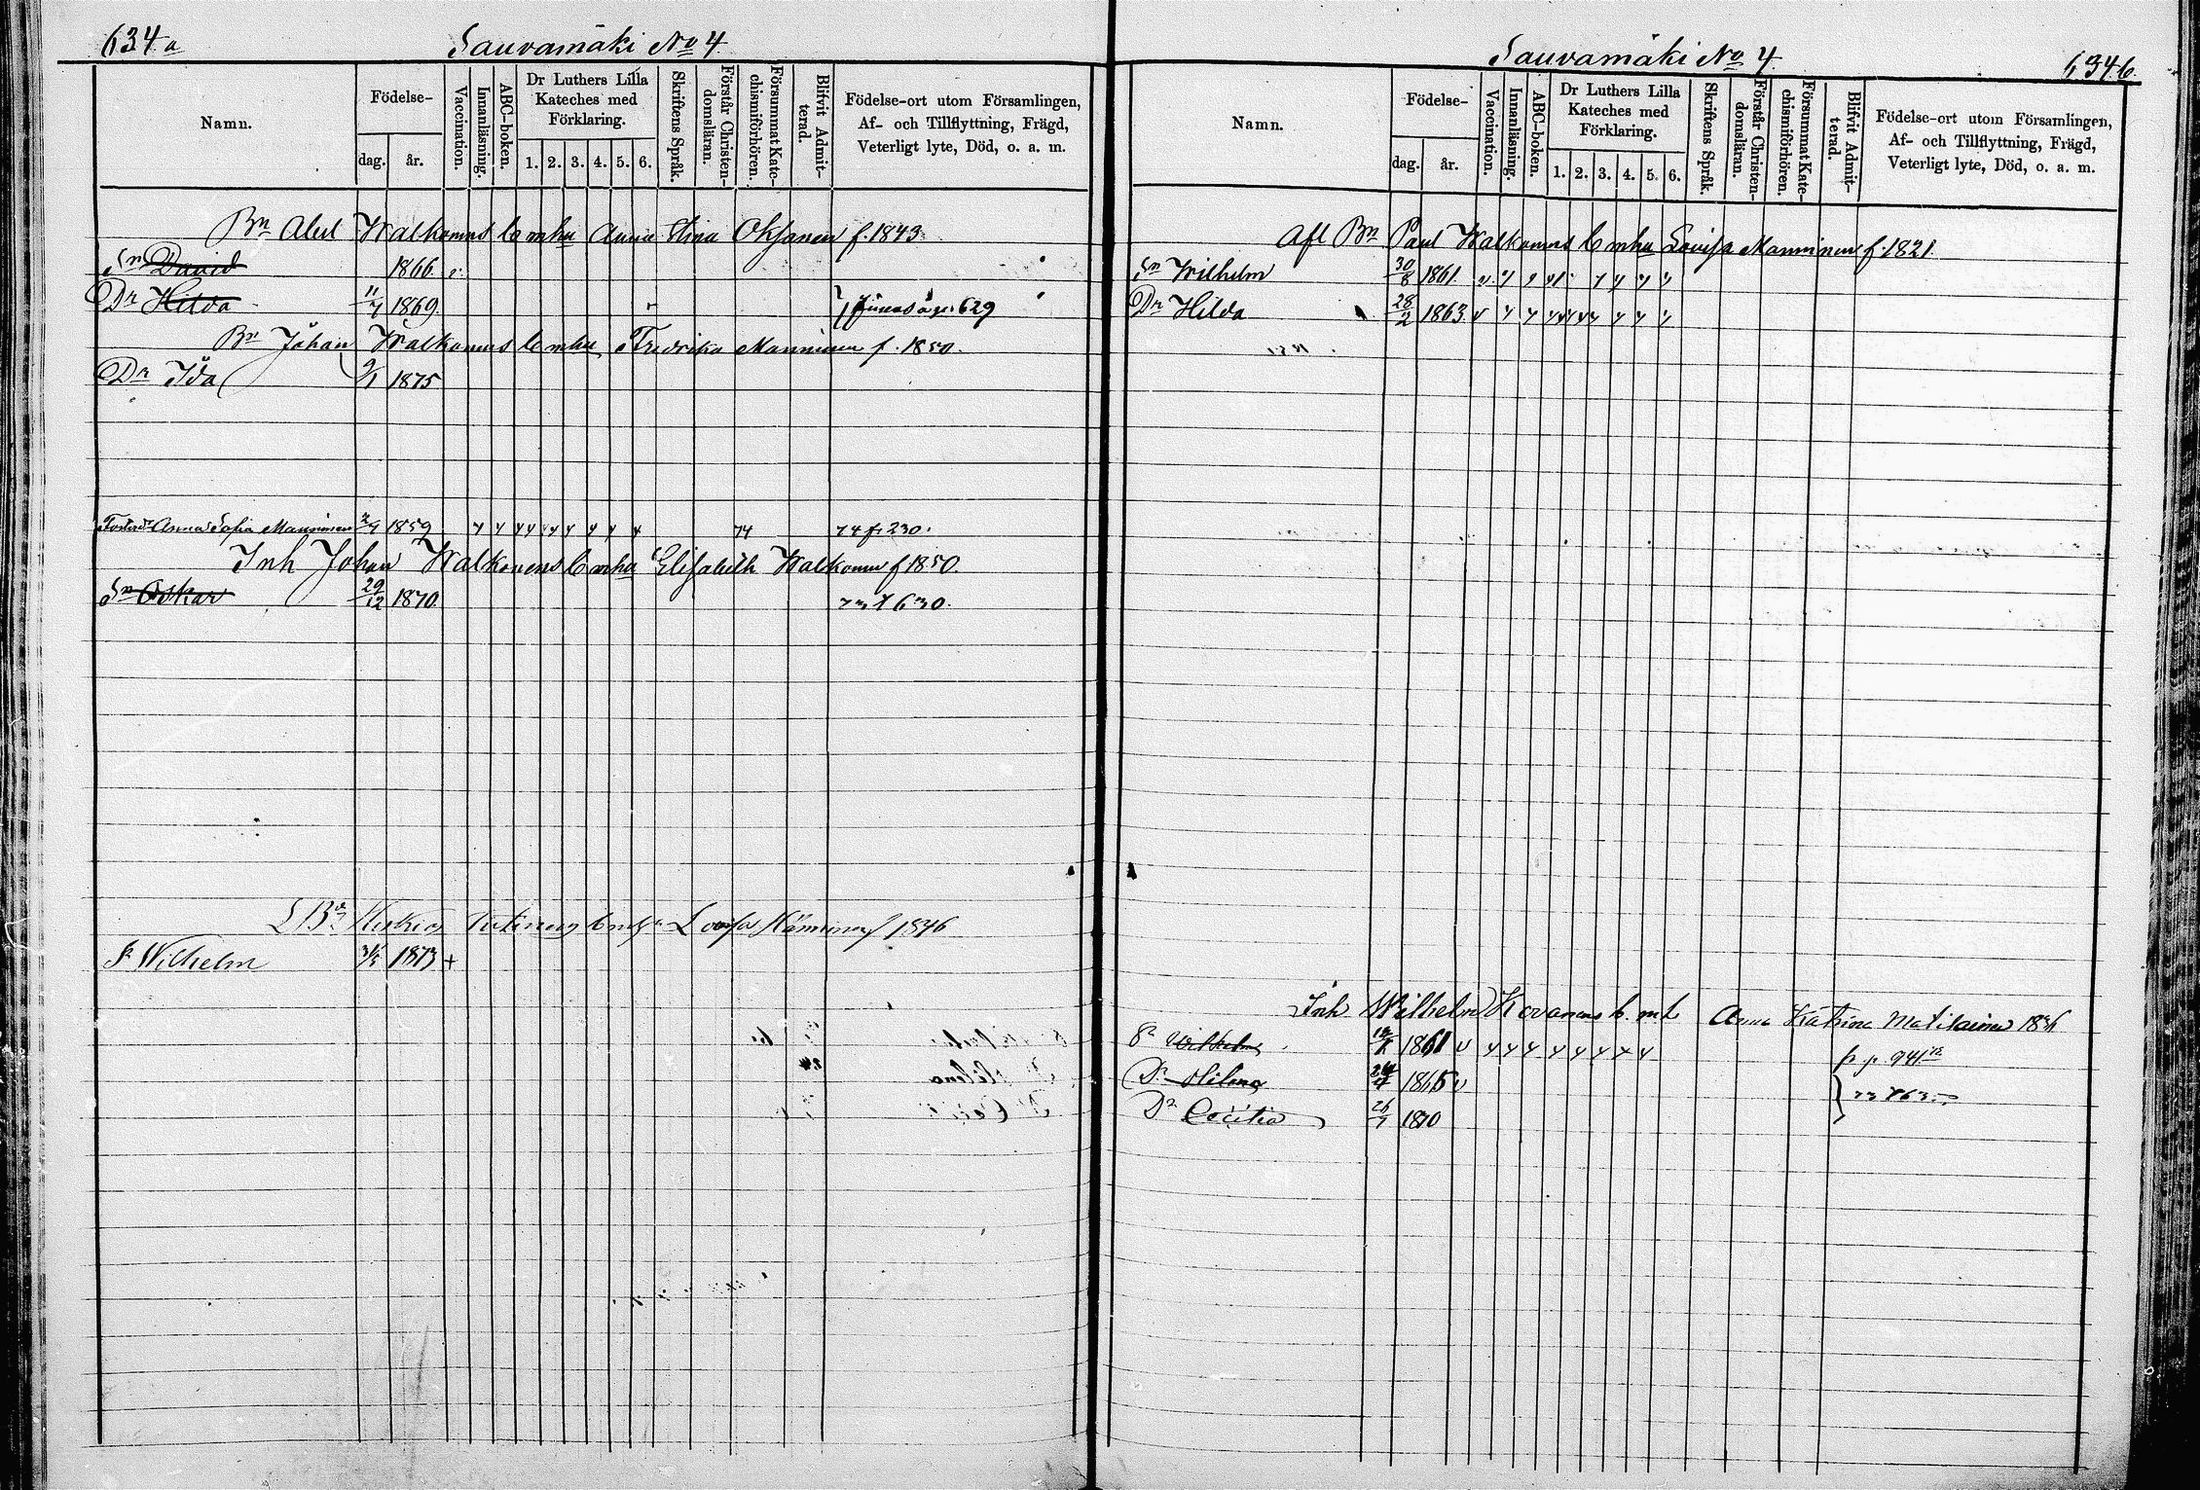 634.a
Sauvamäki No 4.
Namn.
Födelse-
dag.
år.
Vaccination.
Innanläsning.
ABC-boken.
Dr Luthers Lilla
Kateches med
Förklaring.
1. 2. 3. 4. 5. 6.
Skriftens Språk.
Förstår Christen-
domsläran.
Försummat Kate-
chismiförhören.
Blifvit Admit-
terad.
Födelse-ort utom Församlingen,
Af- och Tillflyttning, Frägd,
Veterligt lyte, Död, o. a. m.
Bn Abel Walkonens b m hu Anna Stina Oksanen f. 1843
Sn David 1866
Dr Hilda 11/7 1869. 629
Bn Johan Walkonens b m hu Fredrika Manninen f. 1850.
Dr Ida 9/1 1875
Anna Sofia Manninen 1859 74 74 f. 230.
Inh Johan Walkonens b m hu Elisabeth Walkonen f 1850.
Sn Oskar 29/12 1870. 73 630.
Lovisa 1846
S. Wilhelm 31/5 1873 +
Sauvamäki No 4.
634 b.
Namn.
Födelse-
dag.
år.
Vaccination.
Innanläsning.
ABC-boken.
Dr Luthers Lilla
Kateches med
Förklaring.
1. 2. 3. 4. 5. 6.
Skriftens Språk.
Förstår Christen-
domsläran.
Försummat Kate-
chismiförhören.
Blifvit Admit-
terad.
Födelse-ort utom Församlingen,
Af- och Tillflyttning, Frägd,
Veterligt lyte, Död, o. a. m.
Afl Bn Paul Walkonens b m hu Lovisa Manninen f. 1821.
Sn Wilhelm 30/8 1861.
Dr Hilda 28/2 1863
Inh Wilhelm Kovanens b. m. h Anna Katrina Matilainen
S. Wilhelm 1861 941
Dr Helena 1865
Dr Cecilia 26/7 1870